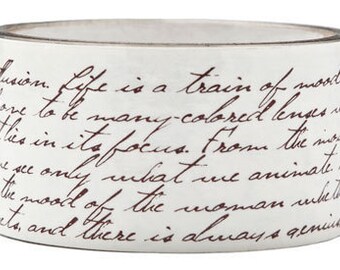 llusion. Life is a train of mood
ove to be many-colored lenses w
t lies in its focus. From the mo
e see only what we animate.
the mood of the woman whethe
ets, and there is always genius